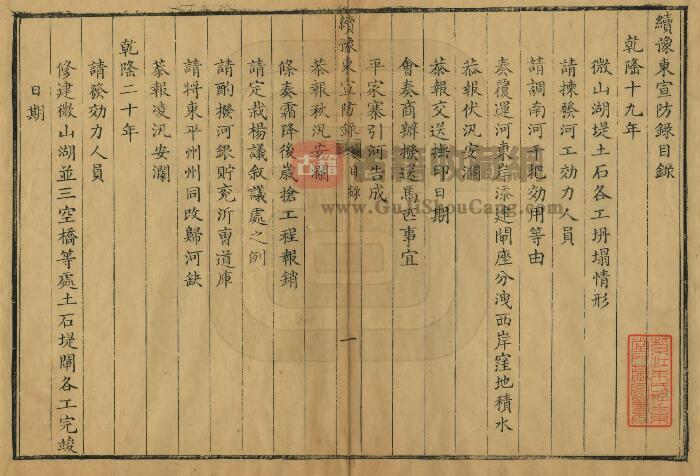 續豫東宣防錄目錄
乾隆十九年
微山湖堤土石各工坍塌情形
請揀發河工効力人員
請調南河千把効用等由
奏覆運河東岸添建閘座分洩西岸窪地積水
恭報伏汛安瀾
恭報交送撫印日期
會奏商辦撥送馬匹事宜
平家寨引河告成
續豫東宣防錄 目錄 一
恭報秋汛安瀾
條奏霜降後歲搶工程報銷
請定栽楊議敘議處之例
請酌撥河銀貯兗沂曹道庫
請將東平州州同改歸河缺
恭報凌汛安瀾
乾隆二十年
請發効力人員
修建微山湖並三空橋等處土石堤閘各工完竣
日期
古籍
古籍收藏網
www.GuJiShouCang.com